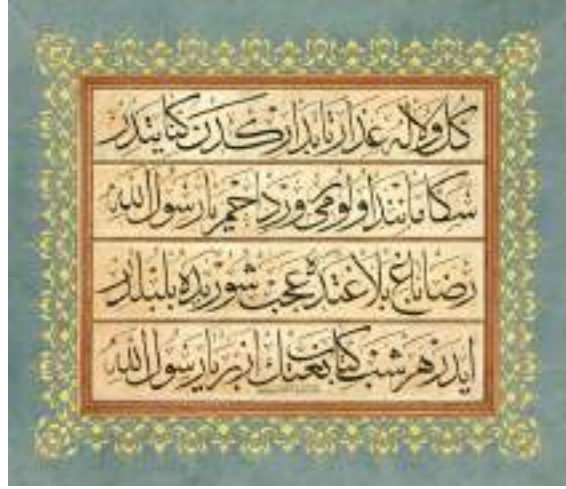 گل و لاله عذار تابدارڭدن كنايتدر
سڭا مانند اولورمی ورد احمر يا رسول الله
رضا باغ بلاغتده عجب شوريده بلبلدر
ايدر هر شب كتاب نعتڭ ازبر يا رسول الله